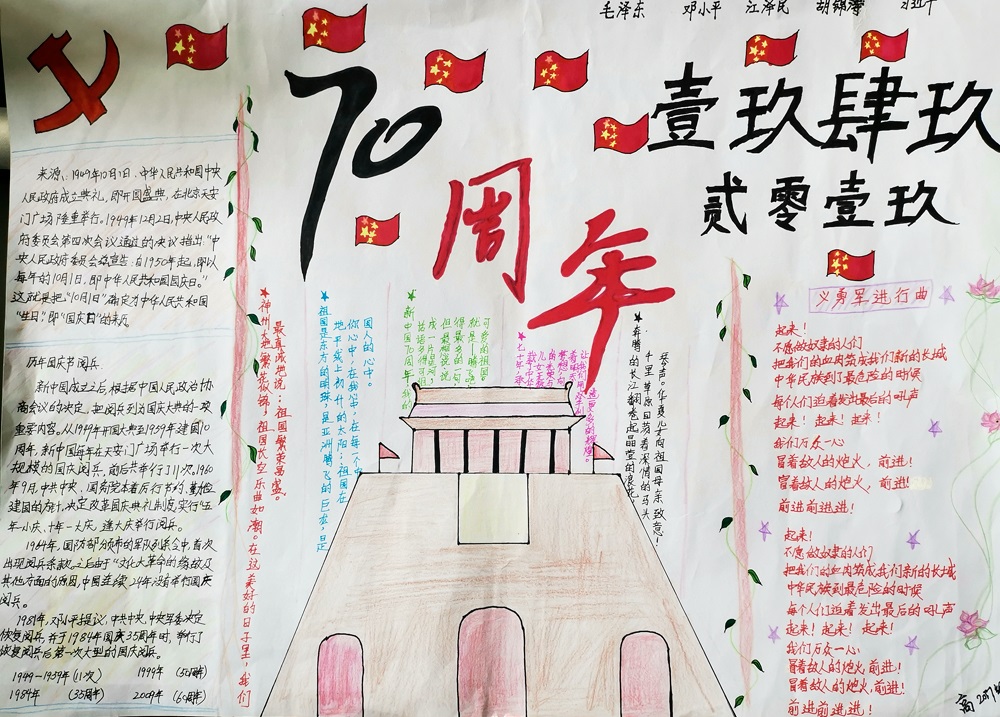 毛泽东 邓小平 江泽民 胡锦涛 习近平
70
周年
壹玖肆玖
贰零壹玖
来源：1949年10月1日，中华人民共和国中央
人民政府成立典礼，即开国盛典，在北京天安
门广场隆重举行。1949年12月2日，中央人民政
府委员会第四次会议通过的决议指出"中
央人民政府委员会兹宣告：自1950年起，即以
每年的10月1日，即中华人民共和国国庆日。"
这就是把"10月1日"确定为中华人民共和国
"生日"，即"国庆日"的来历。
历年国庆节阅兵。
新中国成立之后，根据中国人民政治协
商会议的决定，把阅兵列为国庆大典的一项
重要内容。从1949年开国大典到1959年建国10
周年，新中国每年在天安门广场举行一次大
规模的国庆阅兵，前后共举行了11次。1960
年9月，中共中央、国务院本着厉行节约，勤俭
建国的方针，决定改革国庆典礼制度，实行"五
年一小庆、十年一大庆，逢大庆举行阅兵。
1964年，国防部分颁布的军队列条令中，首次
出现阅兵条款，之后由于"文化大革命的爆发及
其他方面的原因，中国连续24年没有举行国庆
阅兵。
1981年，邓小平提议，中共中央、中央军委决定
恢复阅兵，并于1984年国庆35周年时，举行了
恢复阅兵后第一次大型的国庆阅兵。
1949-1939年(11次) 1999年 (50周年)
1984年 (35周年) 2009年 (60周年)
最真诚地说：祖国繁荣昌盛。
神州大地繁花似锦，祖国长空乐曲如潮。在这美好的日子里，我们
国人的心中。
你心中，在我心中，在每一个
地平线上初升的太阳；祖国在
祖国是东方的明珠，是亚洲腾飞的巨龙，是
可爱的祖国。
新中国70周年
琴声。华夏儿女向祖国母亲致意！
千里草原回荡着深情的马头
奔腾的长江翻卷起晶莹的浪花，
义勇军进行曲
起来！
不愿做奴隶的人们
把我们的血肉筑成我们新的长城
中华民族到了最危险的时候
每个人们迫着发出最后的吼声
起来！起来！起来！
我们万众一心
冒着敌人的炮火，前进！
冒着敌人的炮火，前进！
前进前进进！
起来！
不愿做奴隶的人们
把我们的血肉筑成我们新的长城
中华民族到了最危险的时候
每个人们迫着发出最后的吼声
起来！起来！起来！
我们万众一心
冒着敌人的炮火，前进！
冒着敌人的炮火，前进！
前进前进进！